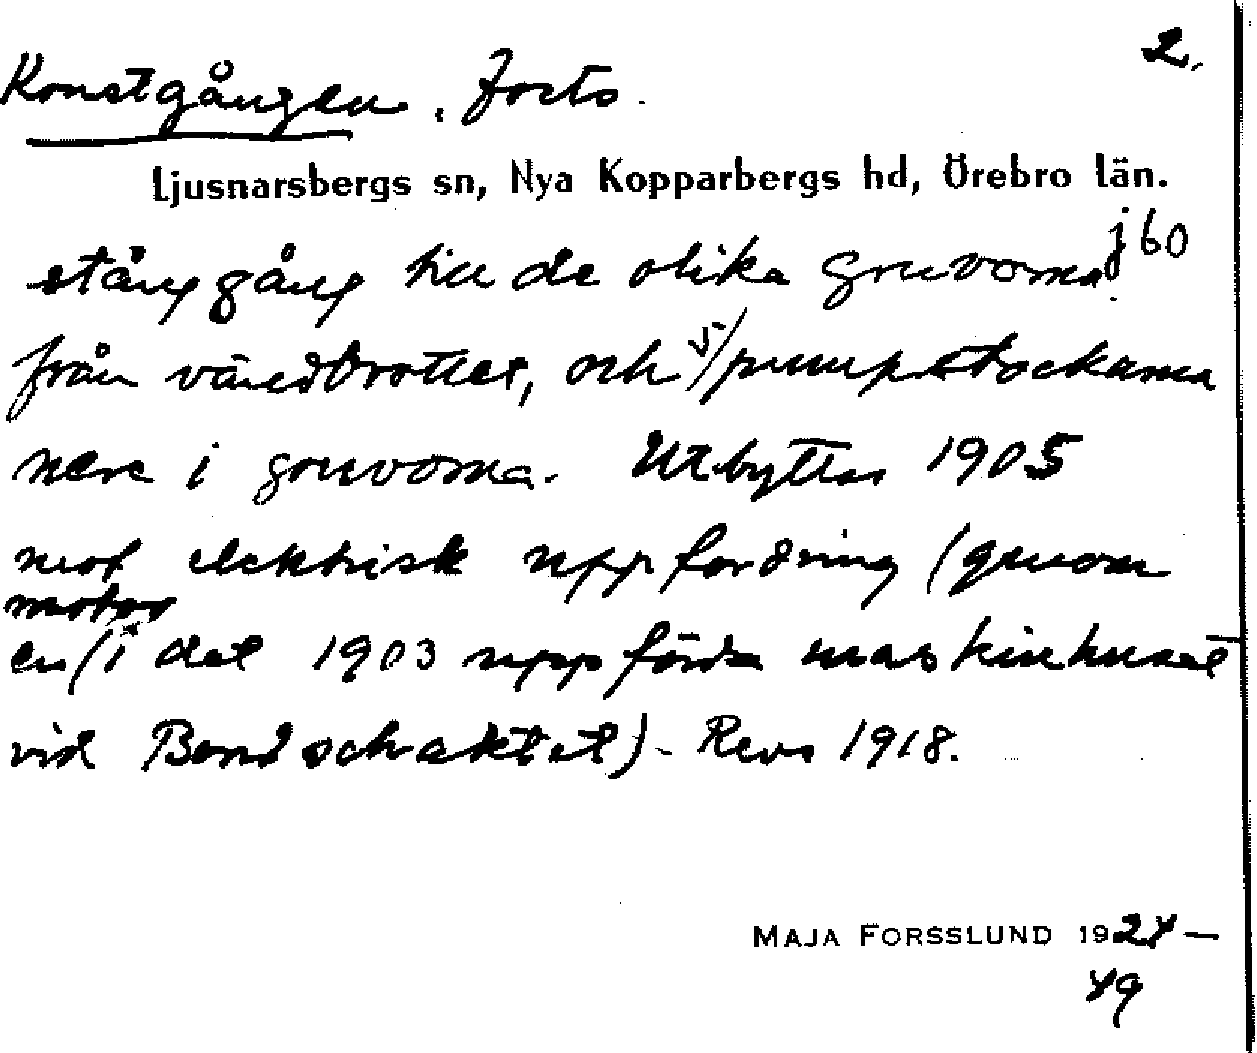 2.
Konstgången. Forts.
Ljusnarsbergs sn, Nya Kopparbergs hd, Örebro län.
j60
stånggång till de olika gruvorna
från vändbrottet, och v/pumpstockarna
nere i gruvorna. Utbyttes 1905
mot elektrisk uppfordring (genom
motor
en/i det 1903 uppförda maskinhuset
vid Bondschaktet). Revs 1918.
MAJA FORSSLUND 1924–
49